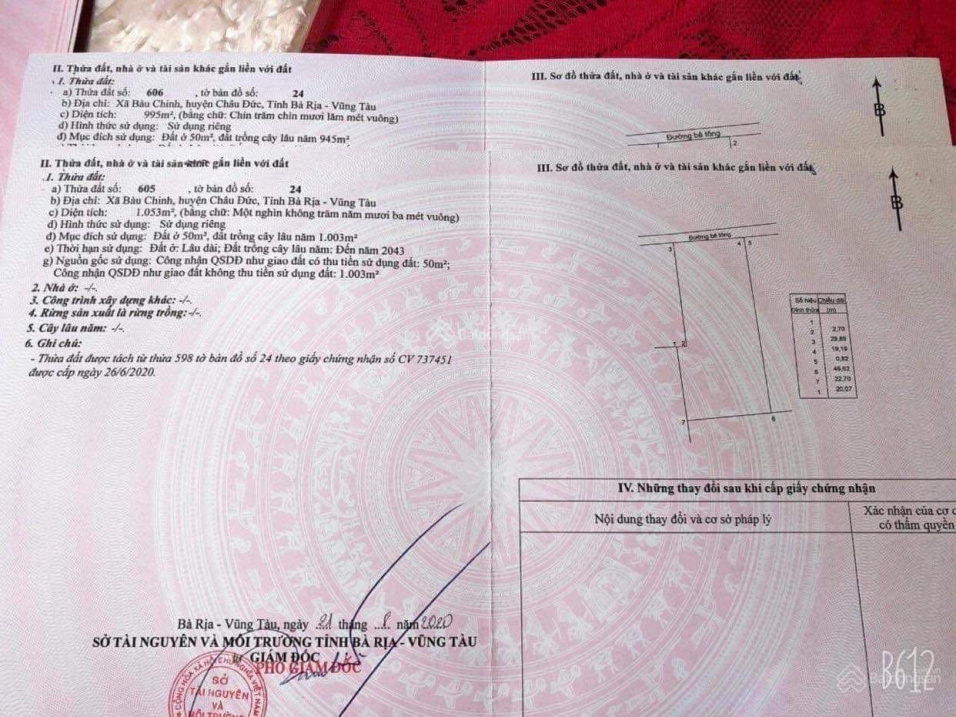 II. Thửa đất, nhà ở và tài sản khác gắn liền với đất
1. Thửa đất:
a) Thửa đất số: 606 , tờ bản đồ số: 24
b) Địa chỉ: Xã Bàu Chinh, huyện Châu Đức, Tỉnh Bà Rịa - Vũng Tàu
c) Diện tích: 995m², (bằng chữ: Chín trăm chín mươi lăm mét vuông)
d) Hình thức sử dụng: Sử dụng riêng
đ) Mục đích sử dụng: Đất ở 50m², đất trồng cây lâu năm 945m²
III. Sơ đồ thửa đất, nhà ở và tài sản khác gắn liền với đất
B
Đường bê tông
1 2
II. Thửa đất, nhà ở và tài sản khác gắn liền với đất
1. Thửa đất:
a) Thửa đất số: 605 , tờ bản đồ số: 24
b) Địa chỉ: Xã Bàu Chinh, huyện Châu Đức, Tỉnh Bà Rịa - Vũng Tàu
c) Diện tích: 1.053m², (bằng chữ: Một nghìn không trăm năm mươi ba mét vuông)
d) Hình thức sử dụng: Sử dụng riêng
đ) Mục đích sử dụng: Đất ở 50m², đất trồng cây lâu năm 1.003m²
e) Thời hạn sử dụng: Đất ở: Lâu dài; Đất trồng cây lâu năm: Đến năm 2043
g) Nguồn gốc sử dụng: Công nhận QSDĐ như giao đất có thu tiền sử dụng đất: 50m²;
Công nhận QSDĐ như giao đất không thu tiền sử dụng đất: 1.003m²
2. Nhà ở: -/-.
3. Công trình xây dựng khác: -/-.
4. Rừng sản xuất là rừng trồng: -/-.
5. Cây lâu năm: -/-.
6. Ghi chú:
- Thửa đất được tách từ thửa 598 tờ bản đồ số 24 theo giấy chứng nhận số CV 737451
được cấp ngày 26/6/2020.
Bà Rịa - Vũng Tàu, ngày 21 tháng 8 năm 2020
SỞ TÀI NGUYÊN VÀ MÔI TRƯỜNG TỈNH BÀ RỊA - VŨNG TÀU
GIÁM ĐỐC
PHÓ GIÁM ĐỐC
SỞ
TÀI NGUYÊN
VÀ
MÔI TRƯỜNG
III. Sơ đồ thửa đất, nhà ở và tài sản khác gắn liền với đất
B
Đường bê tông
3 4 5
1 2
7 6
Số hiệu đỉnh thửa Chiều dài (m)
1
2 2,70
3 29,89
4 19,19
5 0,82
6 49,62
7 22,70
1 20,07
IV. Những thay đổi sau khi cấp giấy chứng nhận
Nội dung thay đổi và cơ sở pháp lý
Xác nhận của cơ
có thẩm quyền
Batdongsan
B612